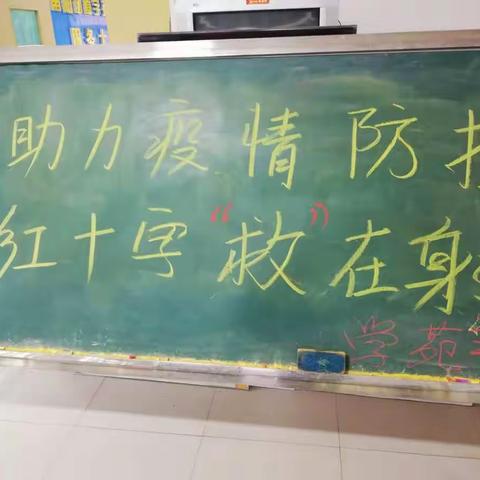 助力疫情防
红十字“救”在身
学苑